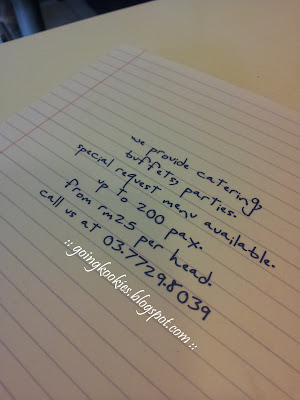 we provide catering,
buffets, parties.
special request menu available.
up to 200 pax.
from rm25 per head.
call us at 03.7729.8039
:: goingkookies.blogspot.com ::